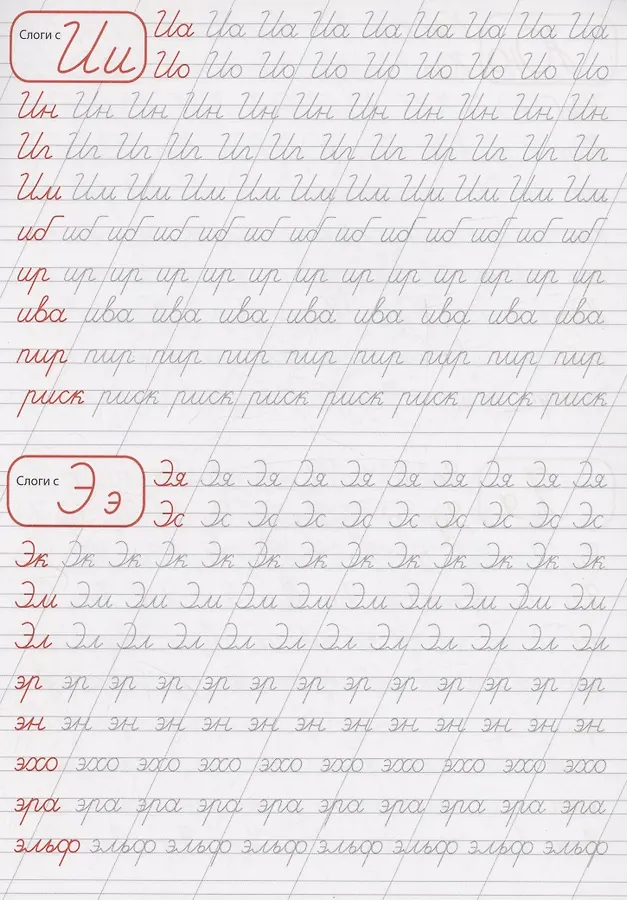 Слоги с Ии
Иа Иа Иа Иа Иа Иа Иа Иа Иа
Ио Ио Ио Ио Ио Ио Ио Ио Ио
Ин Ин Ин Ин Ин Ин Ин Ин Ин Ин Ин
Иг Иг Иг Иг Иг Иг Иг Иг Иг Иг Иг Иг
Им Им Им Им Им Им Им Им Им Им Им
иб иб иб иб иб иб иб иб иб иб иб иб иб
ир ир ир ир ир ир ир ир ир ир ир ир ир
ива ива ива ива ива ива ива ива ива
пир пир пир пир пир пир пир пир пир
риск риск риск риск риск риск риск риск
Слоги с Ээ
Эя Эя Эя Эя Эя Эя Эя Эя Эя Эя
Эс Эс Эс Эс Эс Эс Эс Эс Эс Эс
Эк Эк Эк Эк Эк Эк Эк Эк Эк Эк Эк Эк Эк
Эм Эм Эм Эм Эм Эм Эм Эм Эм Эм Эм
Эл Эл Эл Эл Эл Эл Эл Эл Эл Эл Эл Эл
эр эр эр эр эр эр эр эр эр эр эр эр эр
эн эн эн эн эн эн эн эн эн эн эн эн эн
эхо эхо эхо эхо эхо эхо эхо эхо эхо эхо
эра эра эра эра эра эра эра эра эра эра
эльф эльф эльф эльф эльф эльф эльф эльф